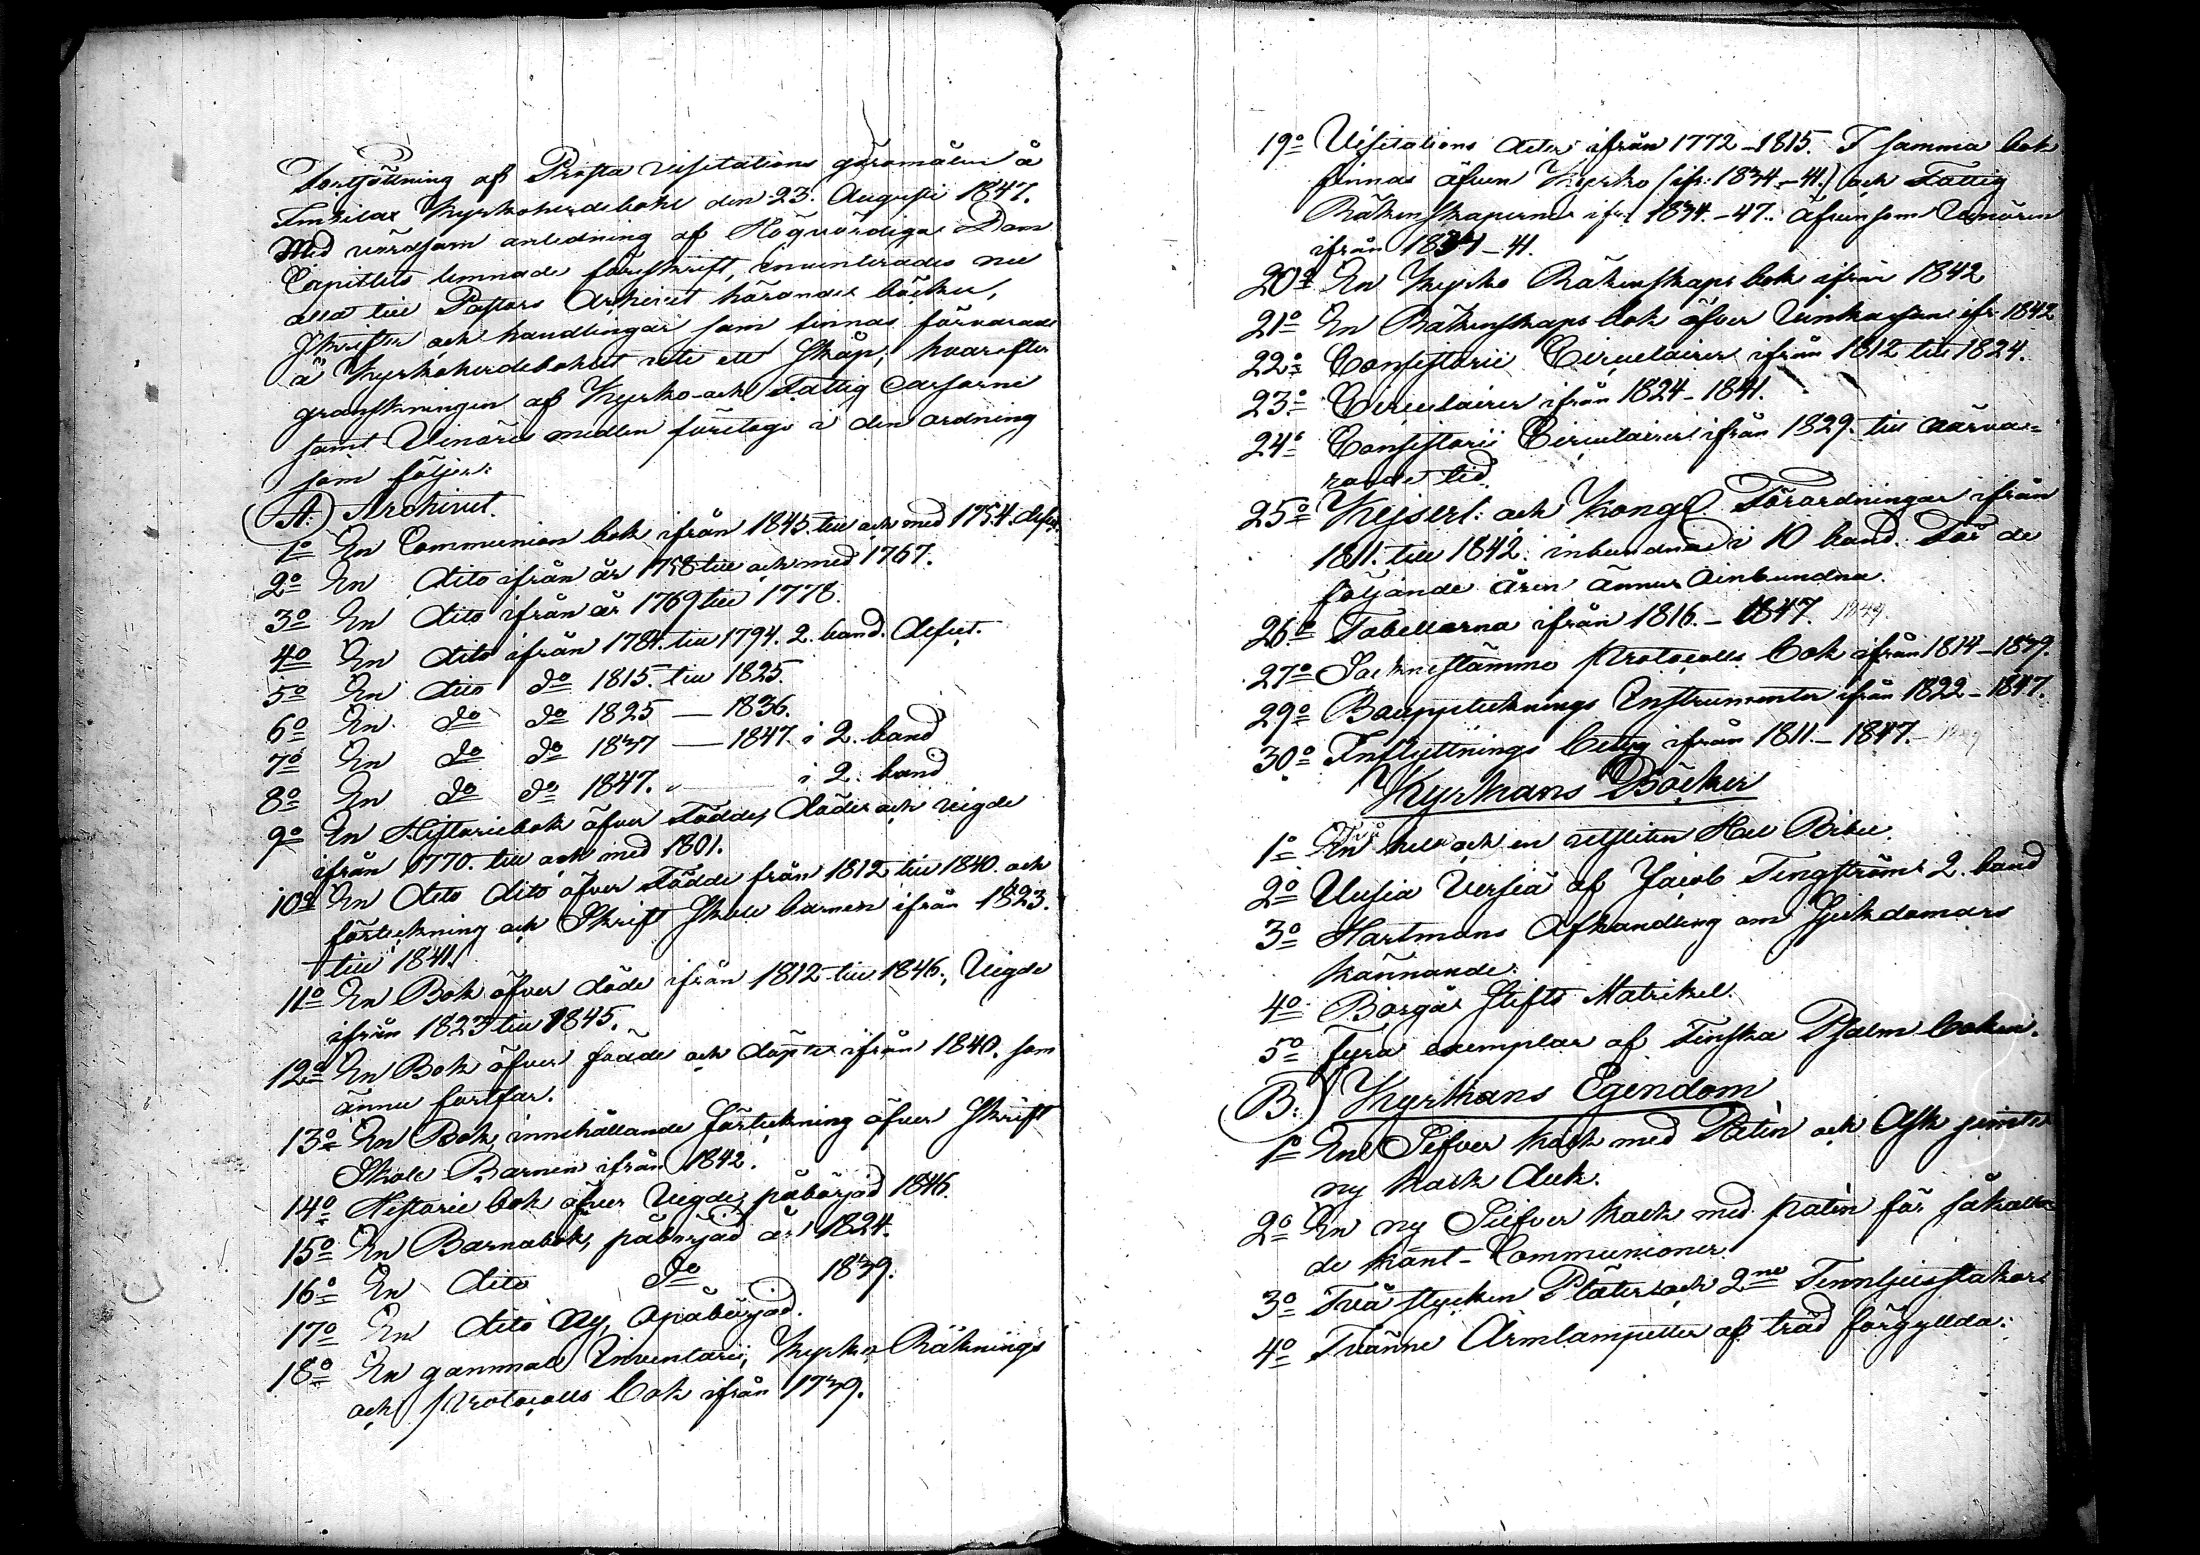 Fortsättning af Prosta visitations göromålen å
Imbilax Kyrkoherdebohl den 23. Augusti 1847.
Med vördsam anledning af Högvördiga Dom
Capitlets lemnade föreskrift, enumlerades nu
alla till Pastors Archivet hörande böcker,
skrifter och handlingar som finnas förvarade
å Kyrkoherdebohlet uti ett skåp; hvarefter
granskningen af Kyrko- och Fattig Cassorne
samt Vinöres medlen företogs i den ordning
som följer:
A:) Archivet.
1o En Communion bok ifrån 1845. till och med 1754. defec.
2o En dito ifrån år 1758 till och med 1767.
3o En dito ifrån år 1769 till 1778.
4o En dito ifrån 1784. till 1794. 2. band. defect.
5o En dito do 1815. till 1825.
6o En do do 1825 — 1836.
7o En do do 1837 — 1847. i 2. band
8o En do do 1847. " — i 2. band
9o En Historiebok öfver Födde, döde och vigde
ifrån 1770. till och med 1801.
10o En dito dito öfver Födde från 1812 till 1840. och
förteckning och Skrift Skole barnen ifrån 1823.
till 1841.
11o En Bok öfver döde ifrån 1812 till 1846., Vigde
ifrån 1823 till 1845.
12o En Bok öfver födde och döpte ifrån 1840. som
ännu fortfar.
13o En Bok, innehållande förteckning öfver Skrift
Skole Barnen ifrån 1842.
14o Historie bok öfver Vigde, påbörjad 1846.
15o En Barnabok, påbörjad år 1824.
16o En dito do 1839.
17o En dito Ny, opåbörjad.
18o En gammal Inventarii, Kyrko, Räknings
och Protocolls bok ifrån 1739.
19o Visitations Acter ifrån 1772–1815. I samma bok
finnas äfven Kyrko (ifr: 1834–41.) och Fattig
Räkenskaperne ifr: 1834.–47. Äfvensom Vinören
ifrån 1834–41.
20o En Kyrko Räkenskaps bok ifrån 1842
21o En Räkenskaps bok öfver Vinkassan ifr. 1842
22o Consistorii Circulairer ifrån 1812 till 1824.
23o Circulairer ifrån 1824–1841.
24o Consistorii Circulairer ifrån 1829. till närva=
rande tid.
25o Kejserl: och Kongl. Förordningar ifrån
1811. till 1842. inbundna i 10 band. För de
följande åren ännu oinbundna.
26o Tabellerna ifrån 1816.–1847. 1849.
27o Socknestämmo Protocolls bok ifrån 1814–1839.
29o Bouppteknings Instrumenter ifrån 1822–1847.
30o Inflyttnings betyg ifrån 1811.–1847.– 1849
Kyrkans Böcker
1o En hel och en utsliten Hel Bibel.
2o Uusia Versiä af Jacob Tengström 2. band
3o Hartmans Afhandling om Sjukdomars
kännande.
4o Borgå Stifts Matrikel.
5o Fyra exemplar af Finska Psalm boken.
B:) Kyrkans Egendom
1o En Silfver kalk med Patén och Ask jemte
ny kalk duk.
2o En ny Silfver kalk med patén för såkalla=
de kant-Communioner.
3o Två stycken Pläter och 2ne Tennljusstakar.
4o Tvänne Armlampetter af träd förgyllda.